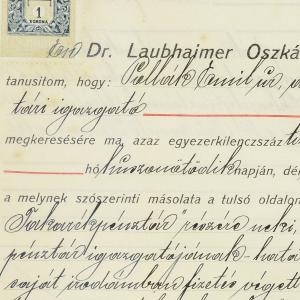 1
KORONA
Én Dr. Laubhaimer Oszká
tanusitom, hogy: Pollák Emil úr, a
tári igazgató
megkeresésére ma, azaz egyezerkilenczszáz ti
hó huszonötödik napján, dél
a melynek szószerinti másolata a tulsó oldalon
Takarékpénztár" részére neki,
pénztár igazgatójának - hatá
saját irodámban fizetés végett